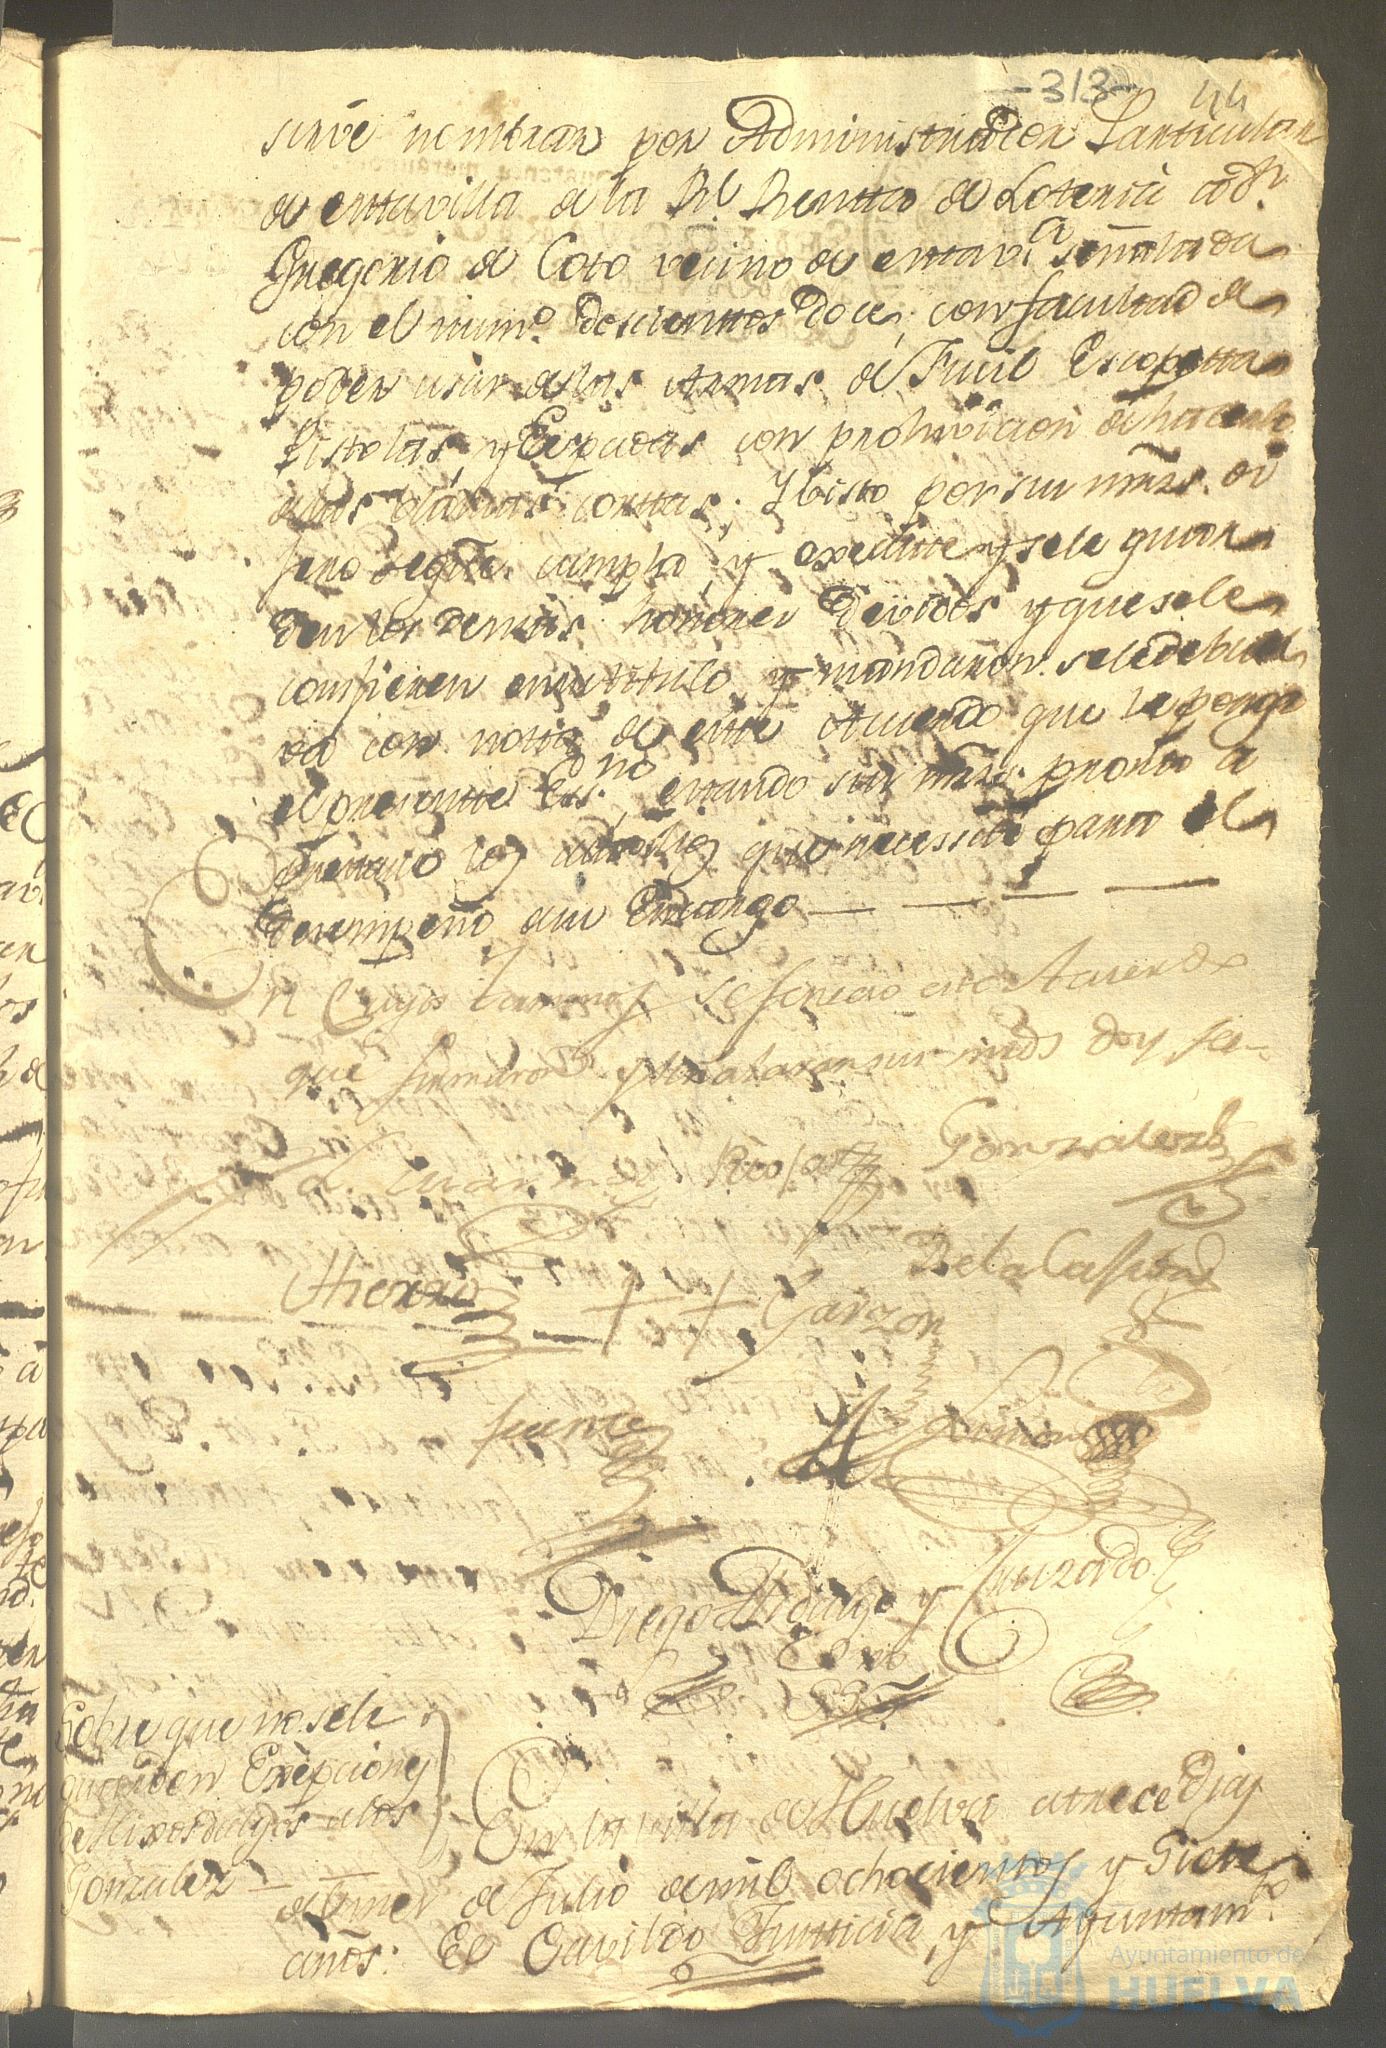 -313- 44
sirve nombrar por Administrador Particular
de esttavilla de la Rl. Rentta de Loteria a Dn.
Gregorio de Coto vecino de esttava. señalada
con el numo. doscienttos doce, con facultad de
poder usar de las Armas de Fucil Escopetta
Pistolas, y Espadas con prohivicion de hacerlo
de las blancas corttas; Y visto por sus mrzds.
cumpla, y execute y se le guar
den los demas honores devidos y que se le
confieren en su titulo, y mandaron se le debuel
va con notta de este Acuerdo que le ponga
el presentte Essno. estando sus mrzds. pronto a
los auxilios que necessite para el
desempeño de su Encargo
En Cuyos terminos se feneció este Acuerdo
que firmaron y señalaron sus mrds doy fee
Gonzalez
De la Cassion
Hierro
Garzon
fuente
Diego Hidalgo y Cruzado
Essno
Sobre que no se le
guarden Exèpciones
de Hixosdalgos a los
Gonzalez
En la villa de Huelva a trece Dias
del mes de Julio de mil ochocientos y Siete
años: El Cavildo Justticia, y Ayuntamto.
Ayuntamiento de
HUELVA